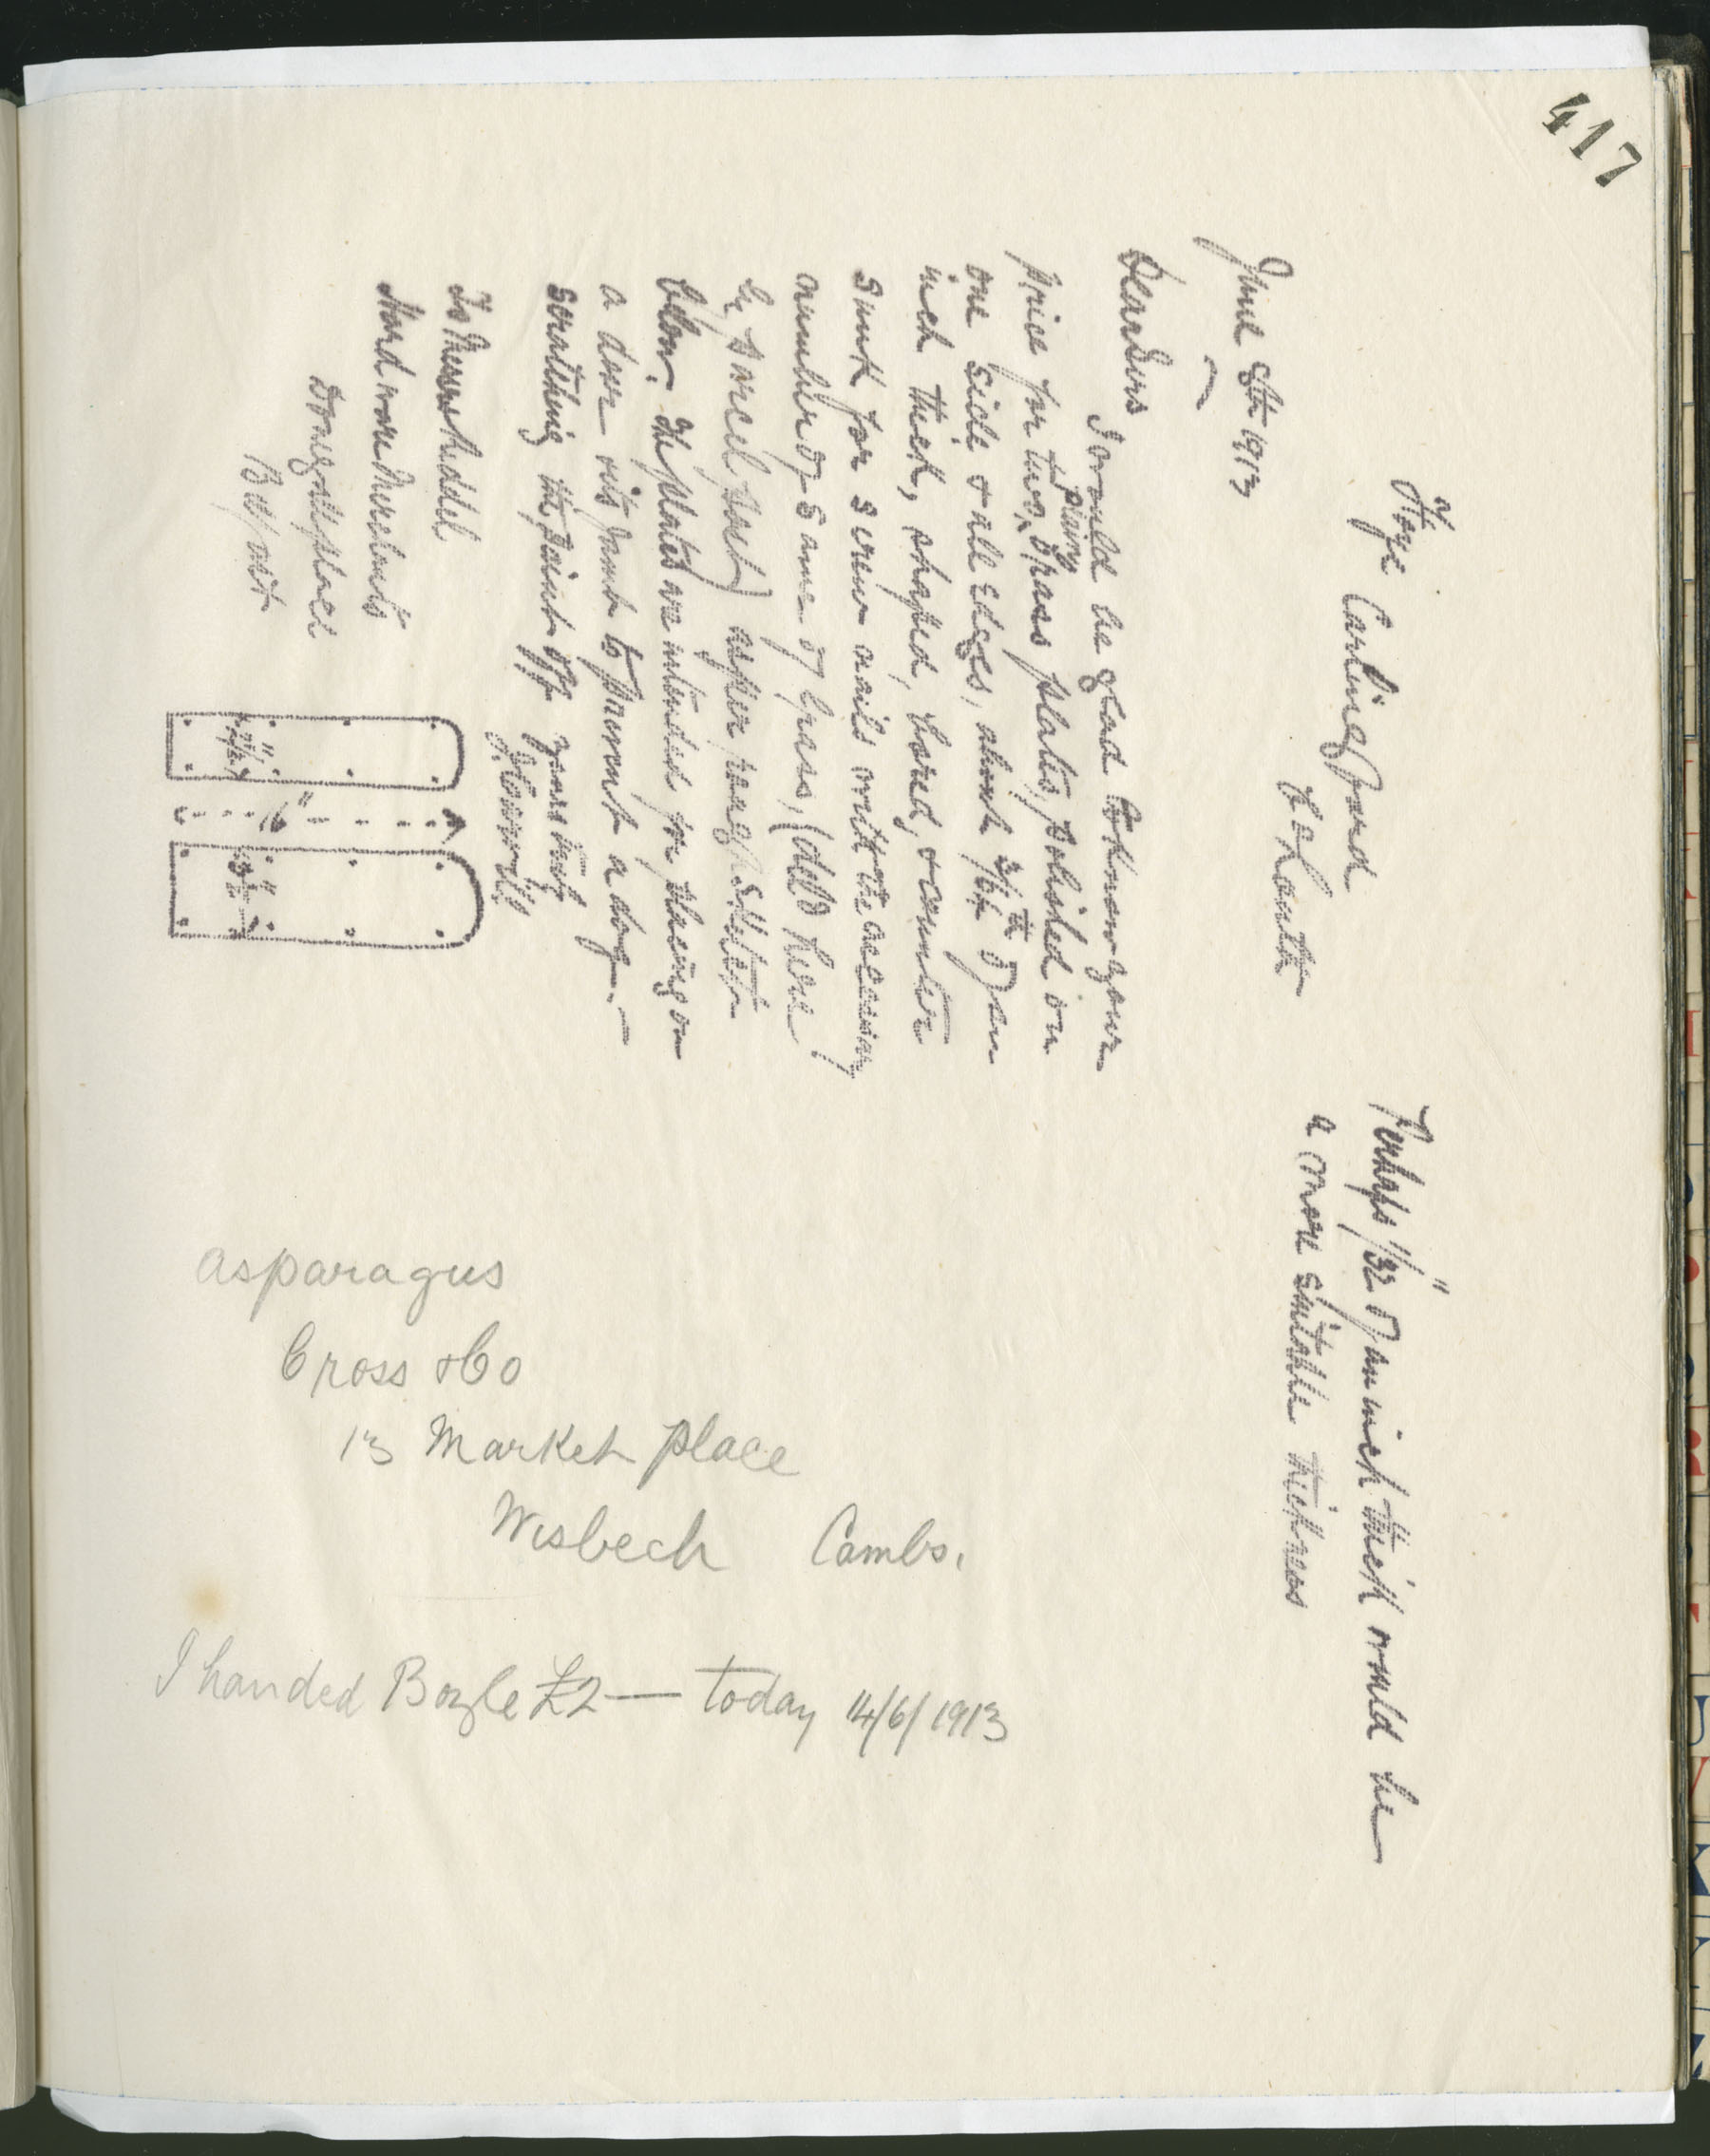 417
Carlingford
Co Louth
June 5th 1913
Dear Sirs
I would be glad to know your
price for two plain brass plates, polished on
one side & all edges, about 3/64th of an
inch thick, shaped, bored, & counter
sunk for screw nails with the necessary
number of same of brass, (deld here
by parcel post) as per rough sketch
below. The plates are intended for placing on
a door & its jamb to prevent a dog
scratching the paint off yours truly
To Messrs Riddel
Hardware Merchants
Donegall place
Belfast
2½"
6"
3½"
Perhaps 1/32" of an inch thick would be
a more suitable thickness
Asparagus
Cross & Co
13 Market place
Wisbech Cambs.
I handed Boyle £2 — today 14/6/1913